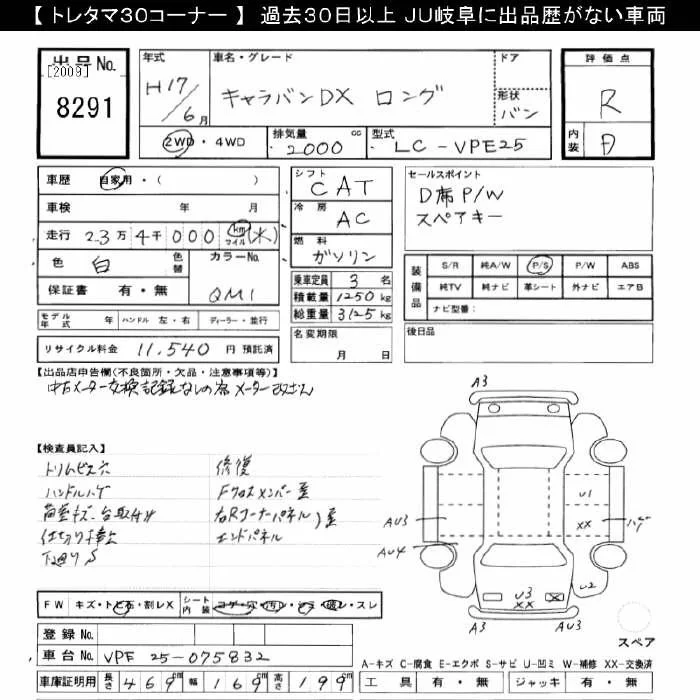 【 トレタマ30コーナー 】 過去30日以上 JU岐阜に出品歴がない車両
出品No.
[2009]
8291
年式
H17/6月
車名・グレード
キャラバンDX ロング
ドア
形状
バン
評価点
R
内装
D
2WD・4WD
排気量
2000 cc
型式
LC-VPE25
車歴 自家用・( )
車検 年 月
走行 2.3万 4千 000 km マイル (メ)
色 白 色替
カラーNo.
QM1
保証書 有・無
シフト
CAT
冷房
AC
燃料
ガソリン
乗車定員 3 名
積載量 1250 kg
総重量 3125 kg
セールスポイント
D席P/W
スペアキー
装備品
S/R 純A/W P/S P/W ABS
純TV 純ナビ 革シート 外ナビ エアB
ナビ型番:
モデル年式 年 ハンドル 左・右 ディーラー・並行
リサイクル料金 11,540 円 預託済
名変期限
月 日
後日品
【出品店申告欄(不良箇所・欠品・注意事項等)】
中古メーター交換記録なしの為メーター改ざん
【検査員記入】
トリムビス穴
ハンドルハゲ
荷室キズ、台取付け
下廻りS
修復
Fクロスメンバー歪
右Rコーナーパネル)歪
エンドパネル
A3
U1
XX
AU3
AU4
U2
U3
XX
A3
A3
スペア
FW キズ・トビ石・割レX
シート内装 コゲ・穴・汚レ・シミ・破レ・スレ
登録No.
車台No. VPE 25-075832
車庫証明用 長さ 469cm 幅 169cm 高さ 199cm
A-キズ C-腐食 E-エクボ S-サビ U-凹ミ W-補修 XX-交換済
工具 有・無 ジャッキ 有・無